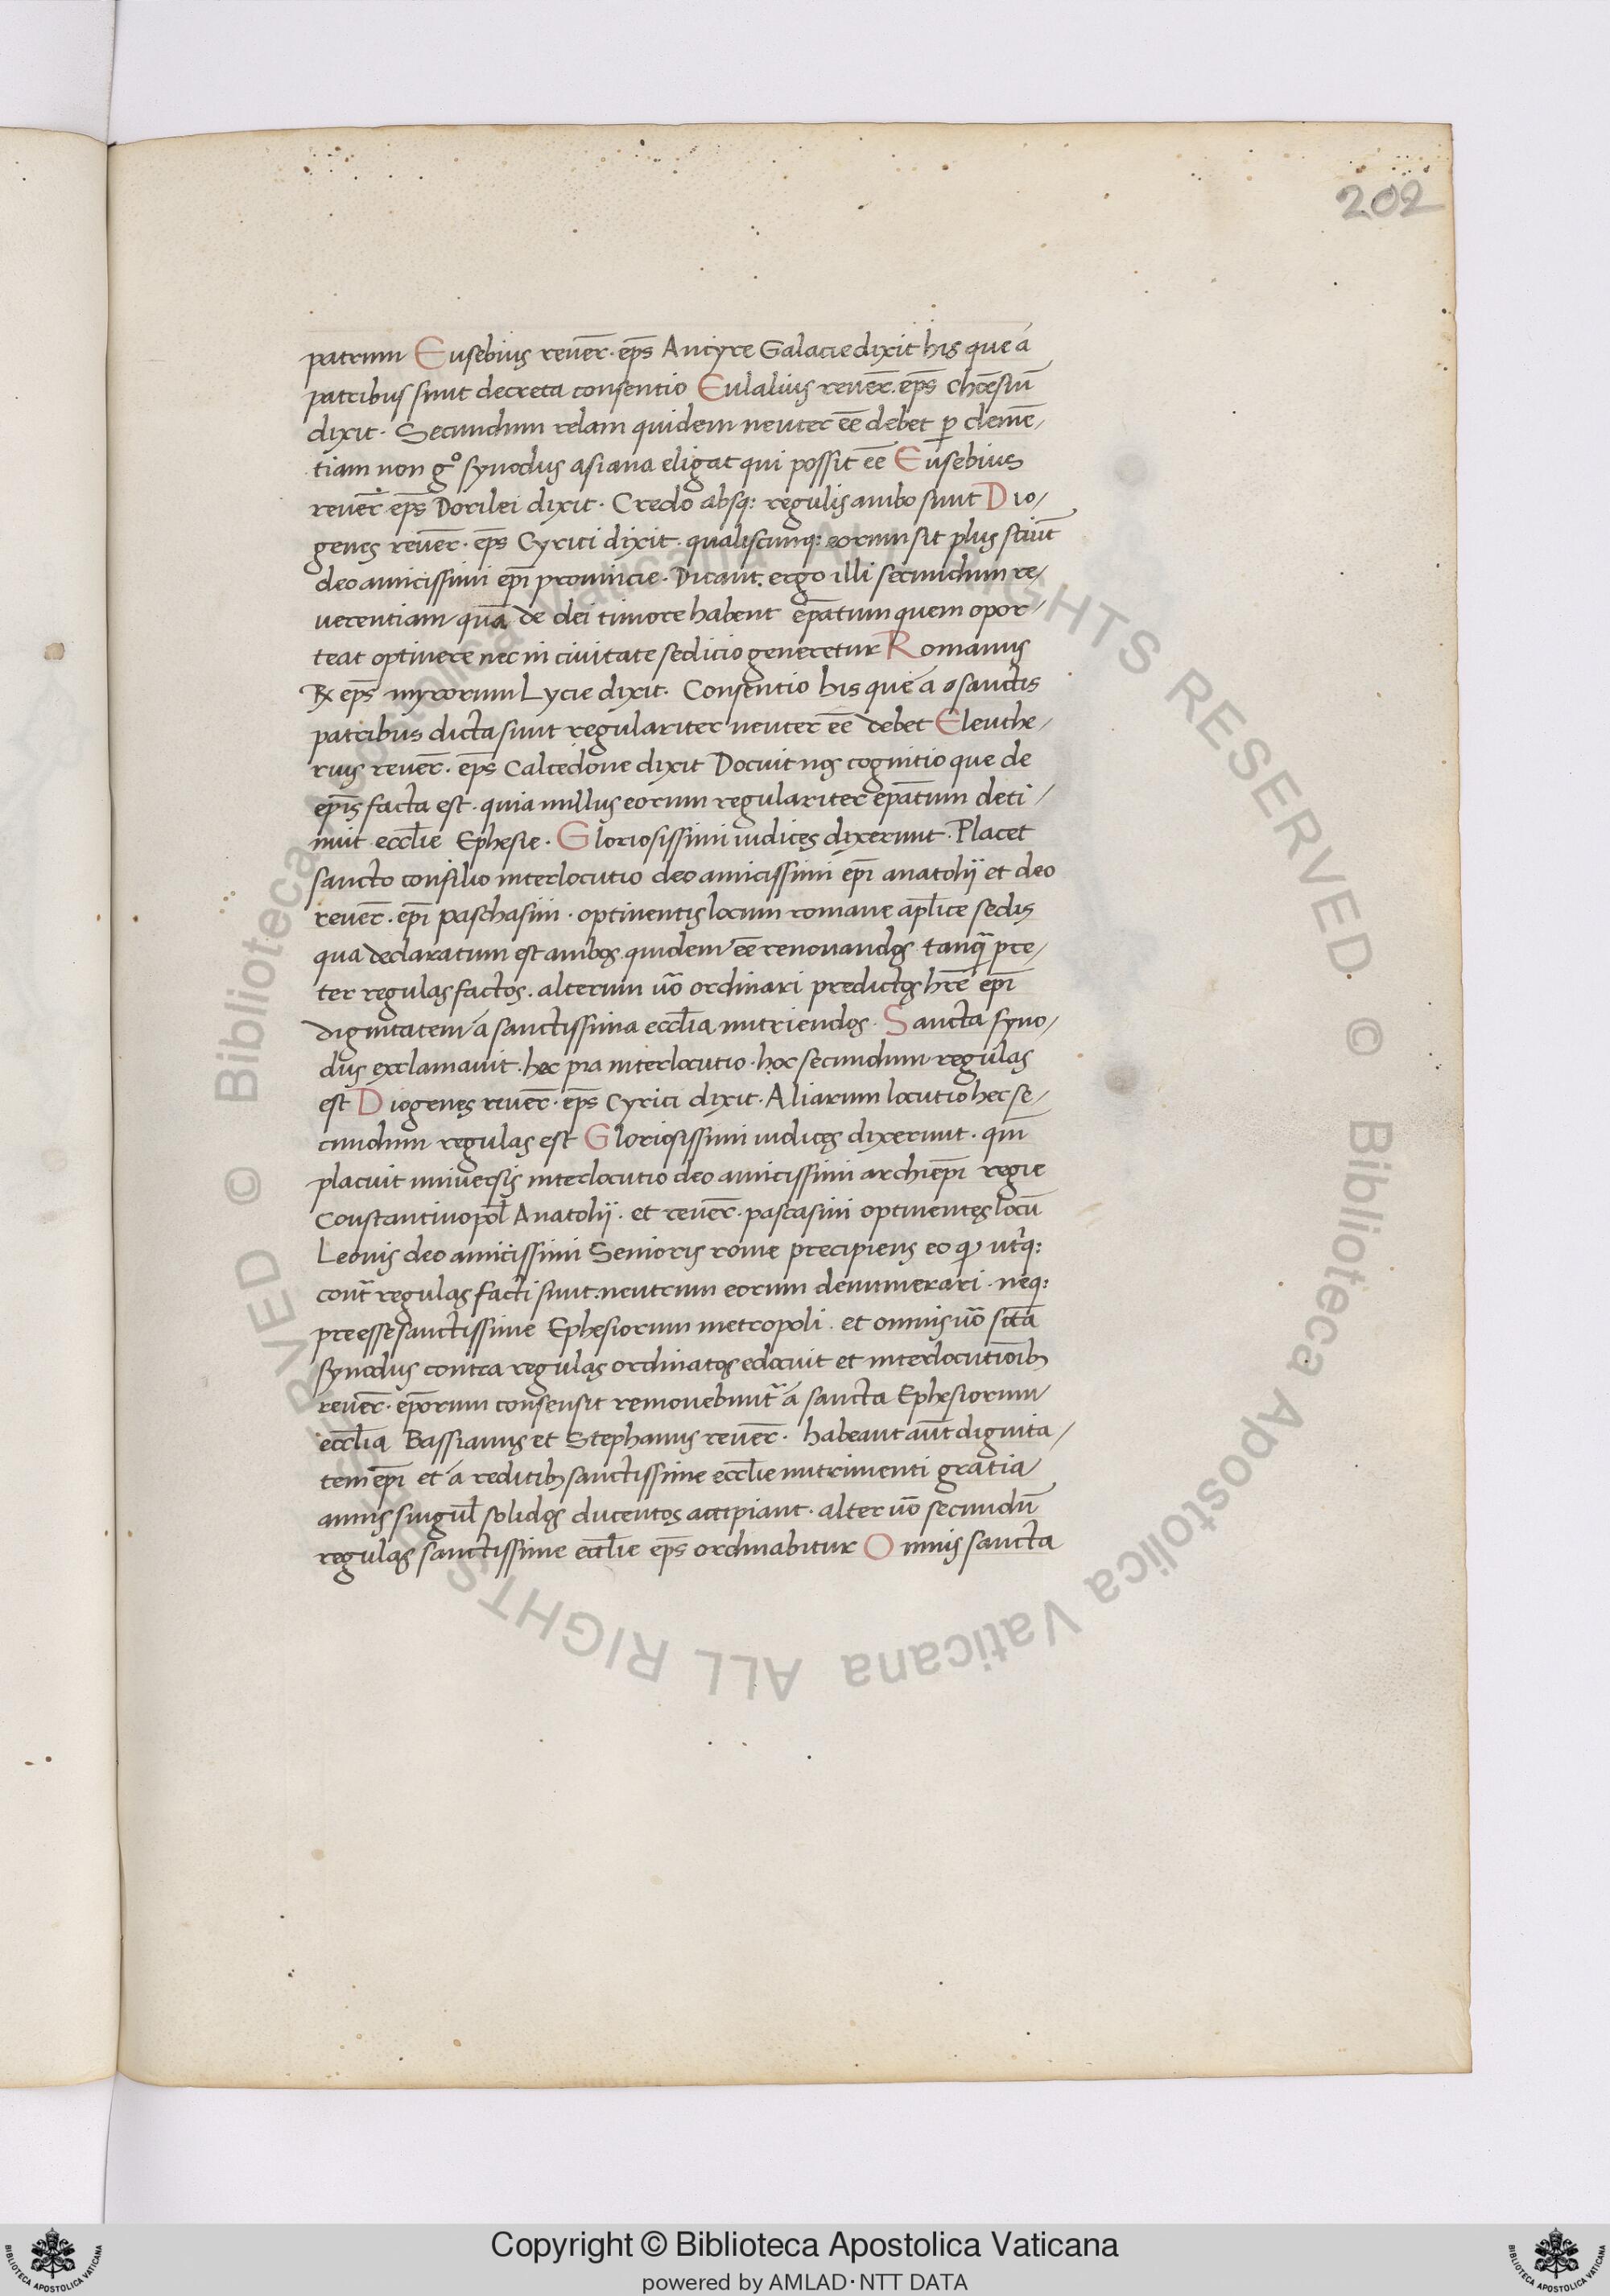 202
patrum Eusebius reueR̄. ep̄s Ancyre Galacie dixit his que á
patribus sunt decreta consentio Eulalius reueR̄. ep̄s chrēsiū
dixit. Secundum relam quidem neuter eē debet ꝑ clemē/
tiam non gͦ synodus asiana eligat qui possit eē Eusebius
reuer̄ ep̄s Dorilei dixit. Credo absq: regulis ambo sunt Dio/
genes reuer̄. ep̄s Cyrici dixit. qualiscunq: eorum sit plus sciūt
deo amicissimi ep̄i prouincie. Dicant. ergo illi secundum re/
uerentiam quā de dei timore habent ep̄atum quem opor/
teat optinere nec in ciuitate sedicio generetur Romanus
℞ ep̄s myrorum Lycie dixit. Consentio his que á sanctis
patribus dicta sunt regulariter neuter eē debet Eleuthe/
rius reuer̄. ep̄s Calcedone dixit Docuit nos cognitio que de
ep̄is facta est. quia nullus eorum regulariter ep̄atum deti/
nuit eccl̄ie Ephesie. Gloriosissimi iudices dixerunt. Placet
sancto consilio interlocutio deo amicissimi ep̄i anatolij et deo
reuer̄. ep̄i paschasini. optinentis locum romane apl̄ice sedis
qua declaratum est ambos quidem eē renouandos tanq̄ pre/
ter regulas factos. alterum uō ordinari predictos hr̄e ep̄i
dignitatem á sanctissima eccl̄ia nutriendos. Sancta syno/
dus exclamauit. hec pia interlocutio. hoc secundum regulas
est Diogenes reuer̄. ep̄s Cyrici dixit. Aliarum locutio hec se/
cundum regulas est Gloriosissimi iudices dixerunt. qm̄
placuit uniuersis interlocutio deo amicissimi archiep̄i regie
Constantinopol̄ Anatolij. et reuer̄. pascasini optinentes locū
Leonis deo amicissimi Senioris rome precipiens eo ꝙ utq̄:
cont̄ regulas facti sunt. neutrum eorum denumerari. neq:
preesse sanctissime Ephesiorum metropoli. et omnis uō sc̄ta
synodus contra regulas ordinatos edocuit et interlocutionib;
reuer̄. ep̄orum consensit remouebunt̄ á sancta Ephesiorum
eccl̄ia Bassianus et Stephanus reuer̄. habeant aūt dignita/
tem ep̄i et á reditib; sanctissime eccl̄ie nutrimenti gratia
annis singul̄ solidos ducentos accipiant. alter uō secundū
regulas sanctissime eccl̄ie ep̄s ordinabitur Omnis sancta
© Biblioteca Apostolica Vaticana ALL RIGHTS RESERVED
© Biblioteca Apostolica Vaticana ALL RIGHTS RESERVED
Copyright © Biblioteca Apostolica Vaticana
powered by AMLAD·NTT DATA
BIBLIOTECA APOSTOLICA VATICANA
BIBLIOTECA APOSTOLICA VATICANA